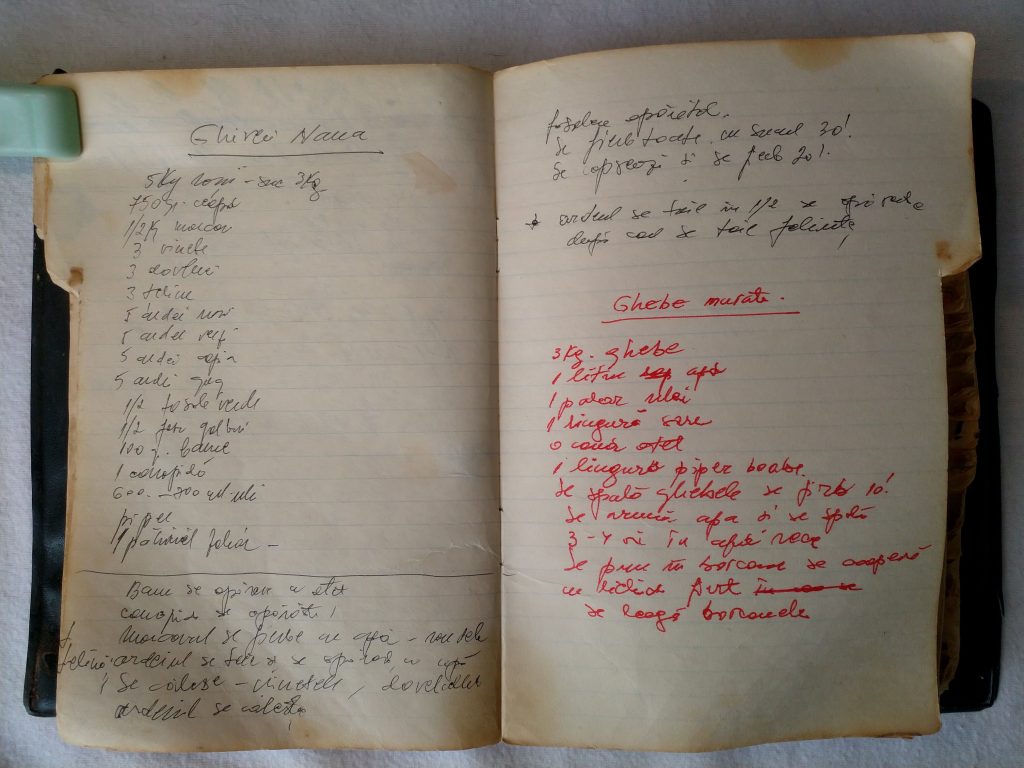 Ghiveci Nana
5 Kg rosii - suc 3 Kg
750 gr. ceapă
1/2 Kg morcov
3 vinete
3 dovlecei
3 telini
5 ardei rosi
5 ardei verzi
5 ardei
5 ardei gog
1/2 fasole verde
1/2 fas galbenă
100 g. bame
1 conopidă
600 - 700 ml ulei
piper
1 pătrunjel foliar -
Bame se opăresc cu otet
conopida se opăreste
Morcovul se fierbe cu apă -
telină ardeiul se taie si se opăresc cu apă
Se călesc - vinetele, dovleceii
ardeiul se căleste
fasolea opărită.
se fierb toate cu sucul 30'.
Se asează si se fierb 20'.
* ardeiul se taie în 1/2 se opăreste
după care se taie felute
Ghebe murate.
3 Kg. ghebe
1 litru apă
1 pahar ulei
1 lingură sare
o cană otet
1 lingură piper boabe
Se spală ghebele se fierb 10'.
Se aruncă apa si se spală
3-4 ori în apă rece
Se pun în borcane se acoperă
cu lichid fiert
se leagă borcanele